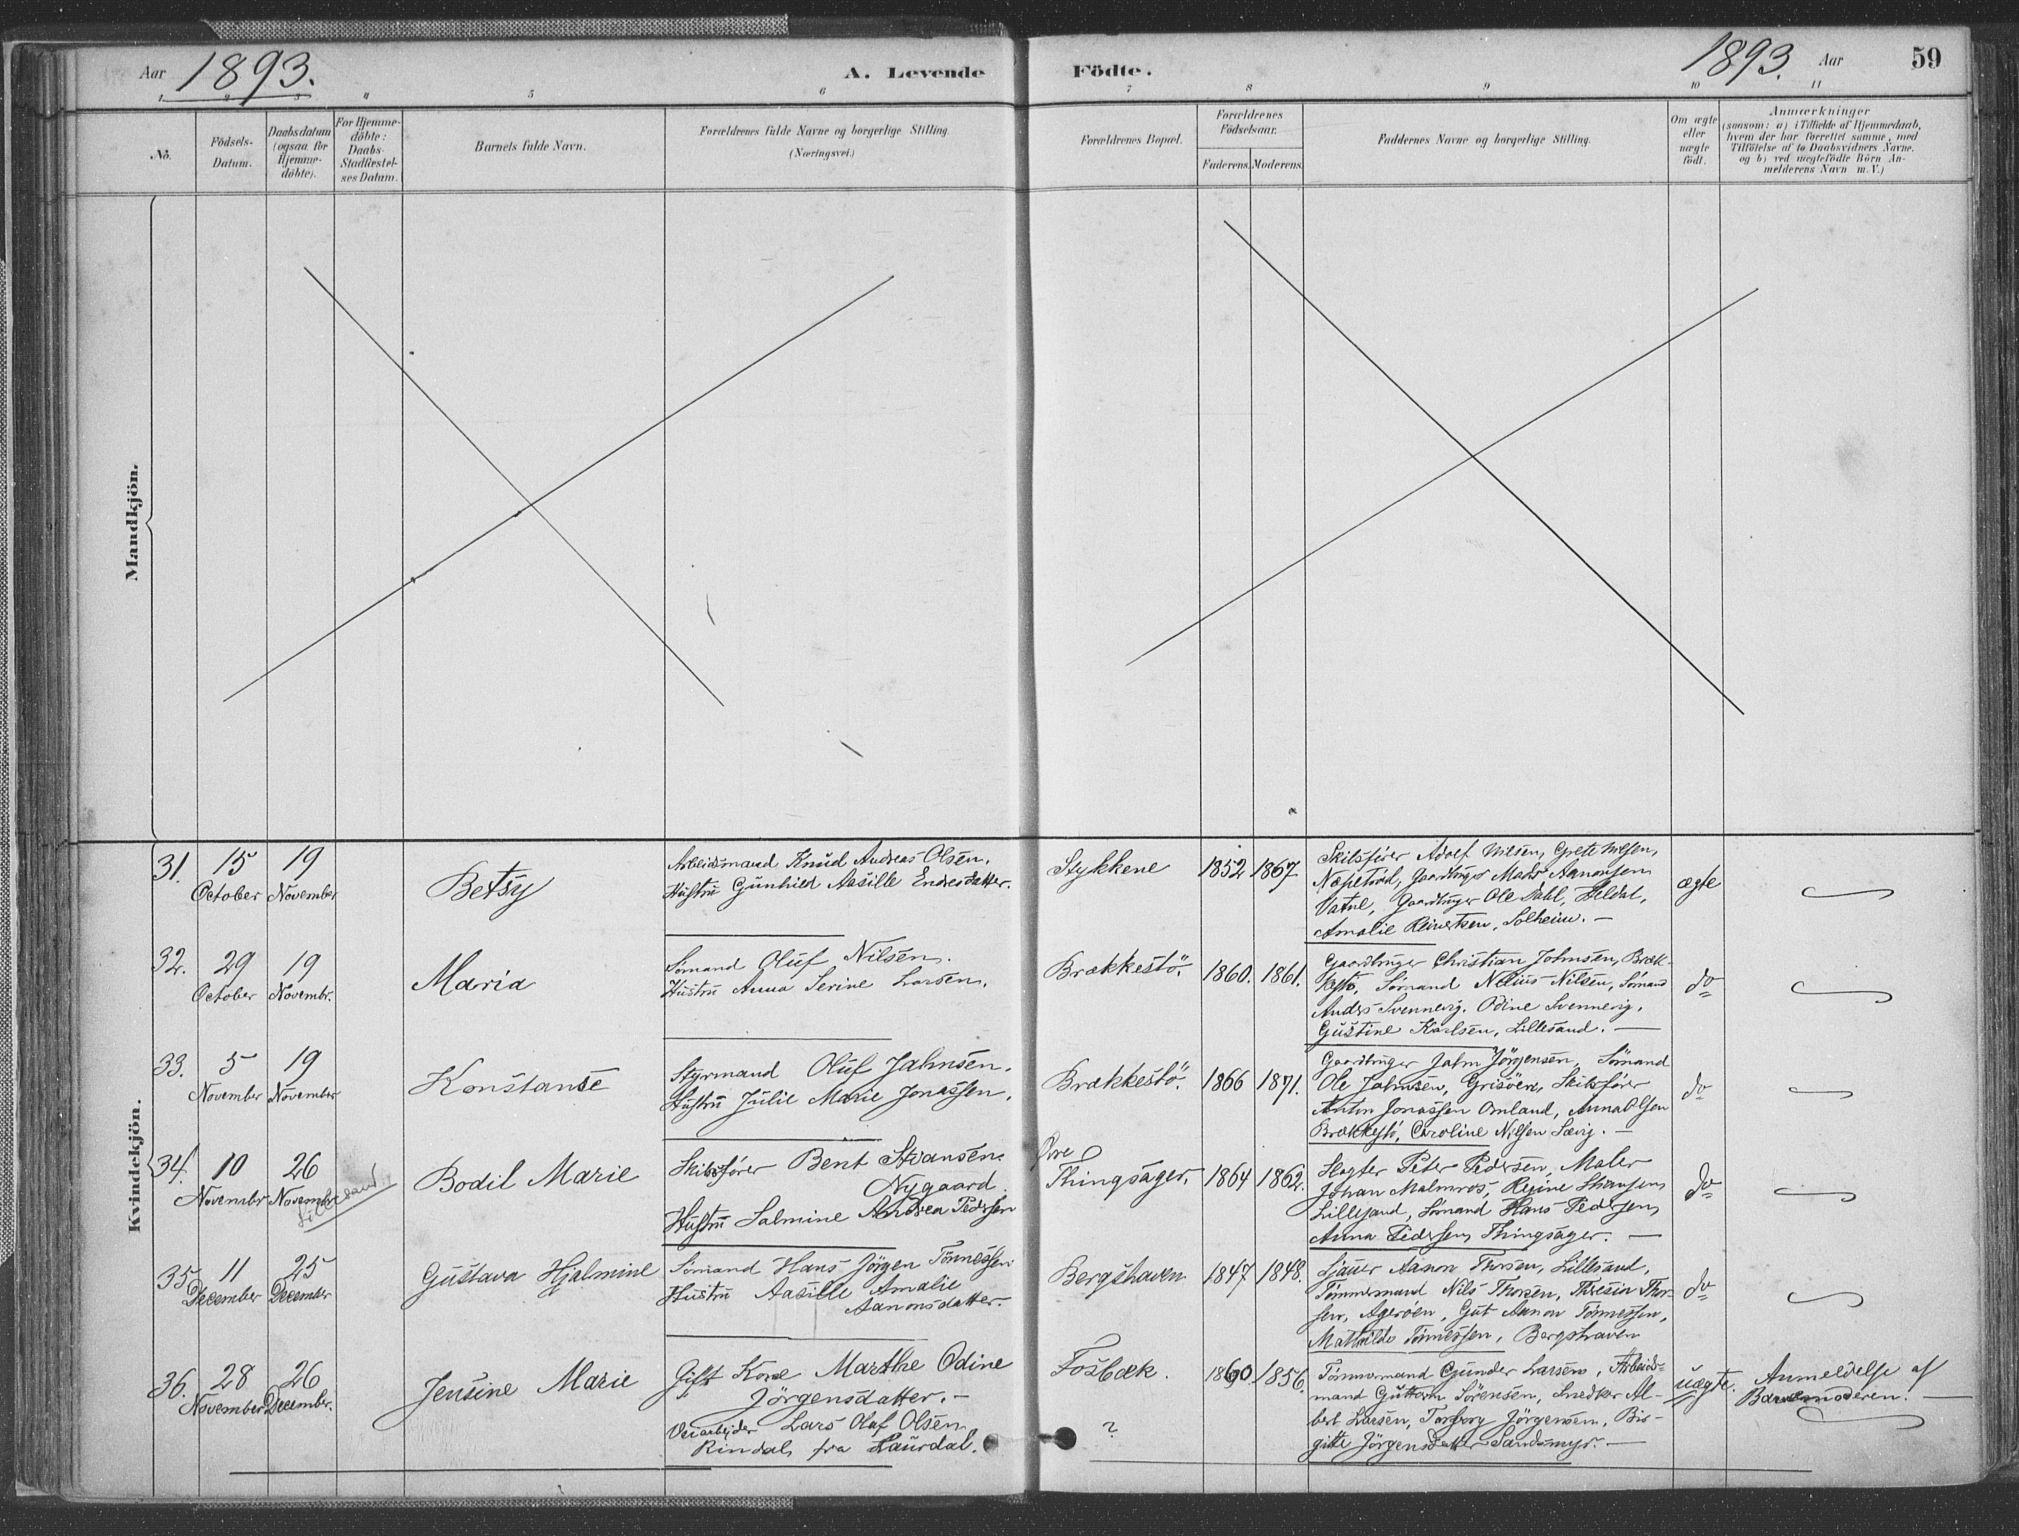 Aar 1893.
A. Levende Födte.
1893. Aar 59
1 2 3 4 5 6 7 8 9 10 11
No.
Födsels-
Datum.
Daabsdatum
(ogsaa for
Hjemme-
döbte).
For Hjemme-
döbte:
Daabs-
Stadfæstel-
ses Datum.
Barnets fulde Navn.
Forældrenes fulde Navne og borgerlige Stilling.
(Næringsvei.)
Forældrenes Bopæl.
Forældrenes
Födselsaar.
Faderens. Moderens.
Faddernes Navne og borgerlige Stilling.
Om ægte
eller
uægte
födt.
Anmærkninger
(saasom: a) i Tilfælde af Hjemmedaab,
hvem der har forrettet samme, med
Tilföielse af to Daabsvidners Navne.
og b) ved uægtefödte Börn An-
melderens Navn m.V.)
Mandkjön.
Kvindekjön.
31. 15 October
19 November
Betsy
Arbeidsmand Knud Andreas Olsen,
Hustru Gunhild Aasille Endresdatter.
Stykkene
1852 1867
Skibsfører Adolf Nilsen, Grete Nilsen,
Næpetved, Gaardbruger Mads Aanonsen
Vatne, Gaardbruger Ole Dahl, Heldal,
Amalie Reinertsen, Solheim. —
ægte
32. 29 October
19 Novembr.
Maria
Sømand Oluf Nilsen.
Hustru Anna Serine Larsen.
Brækkestö.
1860. 1861.
Gaardbruger Christian Johnsen, Bræk-
kestö, Sømand Nilsen, Sømand
Anders Svennevig, Odine Svennevig,
Gustine Karlsen, Lillesand. —
do
33. 5 November
19 November
Konstanse
Styrmand Oluf Jahnsen.
Hustru Julie Marie Jonassen.
Brækkestö.
1866 1871.
Gaardbruger Jahn Jörgensen, Sömand
Ole Jahnsen, Grisöen, Skibsfører
Anton Jonassen Omland, Anna Olsen
Brækkestö, Caroline Nilsen Sævig. —
do
34. 10 November
26 Novembr
Lillesand
Bodil Marie
Skibsfører Bent
Nygaard.
Hustru Salmine Andrea Pedersen
Øvre
Thingsager.
1864 1862.
Slagter Peter Pedersen, Maler
Johan Malmros, Regine
Lillesand, Sømand Hans Pedersen,
Anna Pedersen, Thingsager. —
do
35. 11 December
25 December
Gustava Hjalmine
Sømand Hans Jörgen Tönnessen
Hustru Aasille Amalie
Aanonsdatter.
Bergshaven
1847 1848.
Sjauer Aanon Thorsen, Lillesand,
Tømmermand Nils Thorsen, Theresia Thor-
sen, Agerøen, Gut Aanon Tönnessen,
Mathilde Tönnessen, Bergshaven
do
36. 28 November
26 December.
Jensine Marie
Gift Kone Marthe Odine
Jörgensdatter. —
Veiarbeider Lars Oluf Olsen
Rindal, fra Laurdal.
Fosbæk.
?
1860 1856.
Tömmermand Gunder Larsen, Arbeids-
mand Guttorm Sørensen, Snedker Al-
bert Larsen, Torborg Jörgensen, Bir-
gitte Jörgensdatter Sandsmyr. —
uægte.
Anmeldelse af
Barnemoderen. —